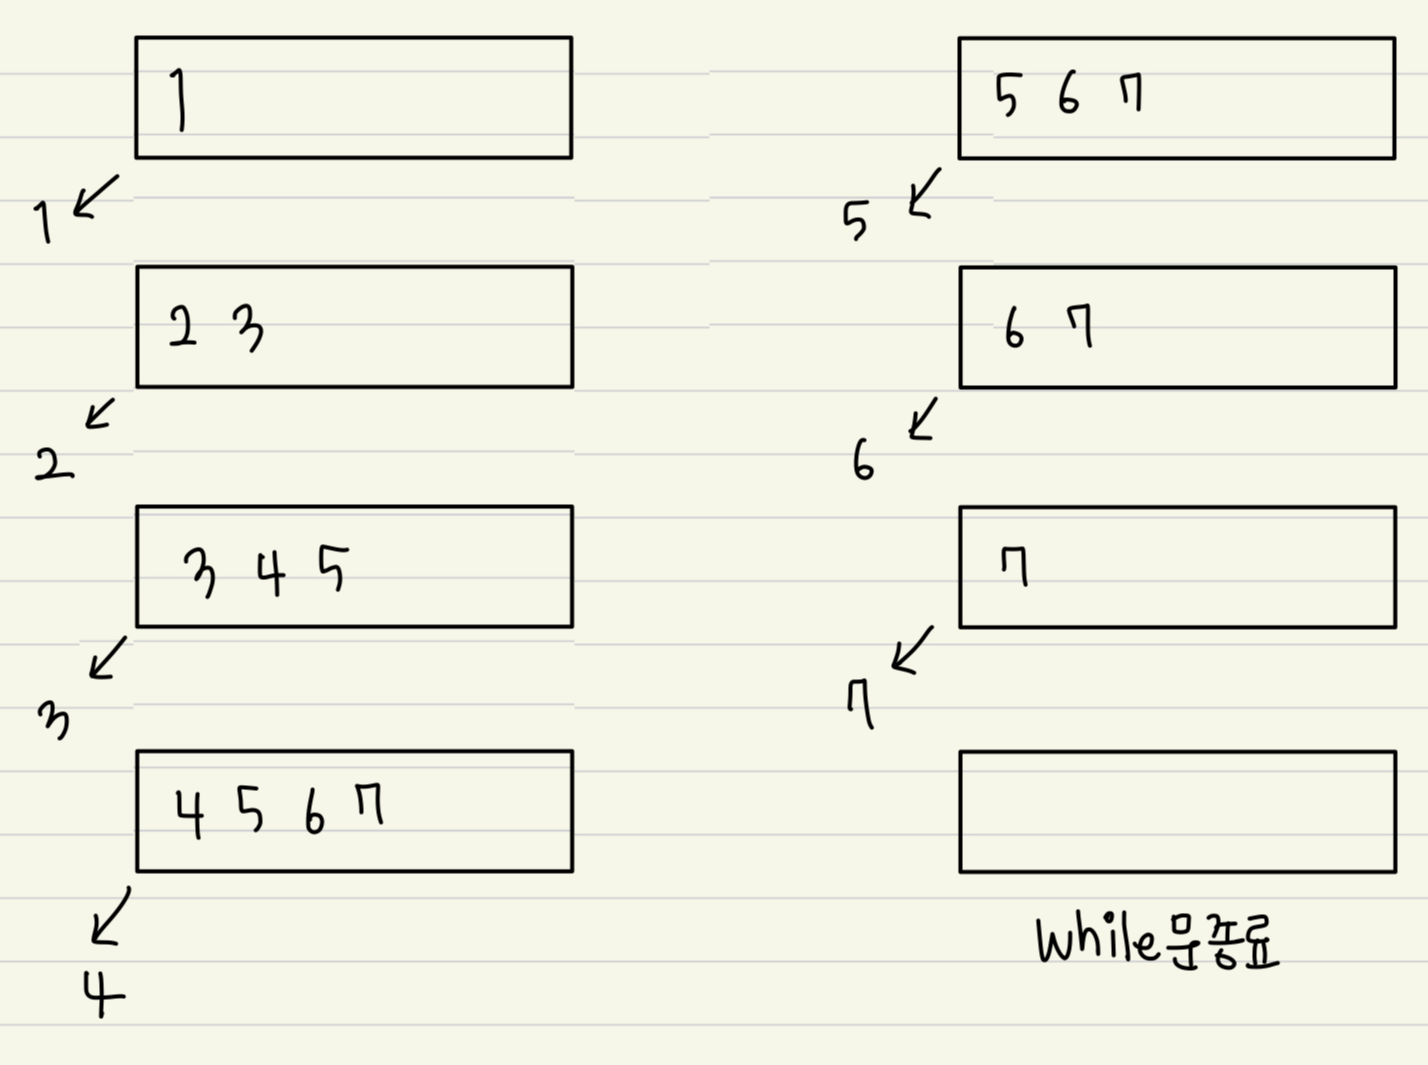 1
1
2 3
2
3 4 5
3
4 5 6 7
4
5 6 7
5
6 7
6
7
7
while문종료